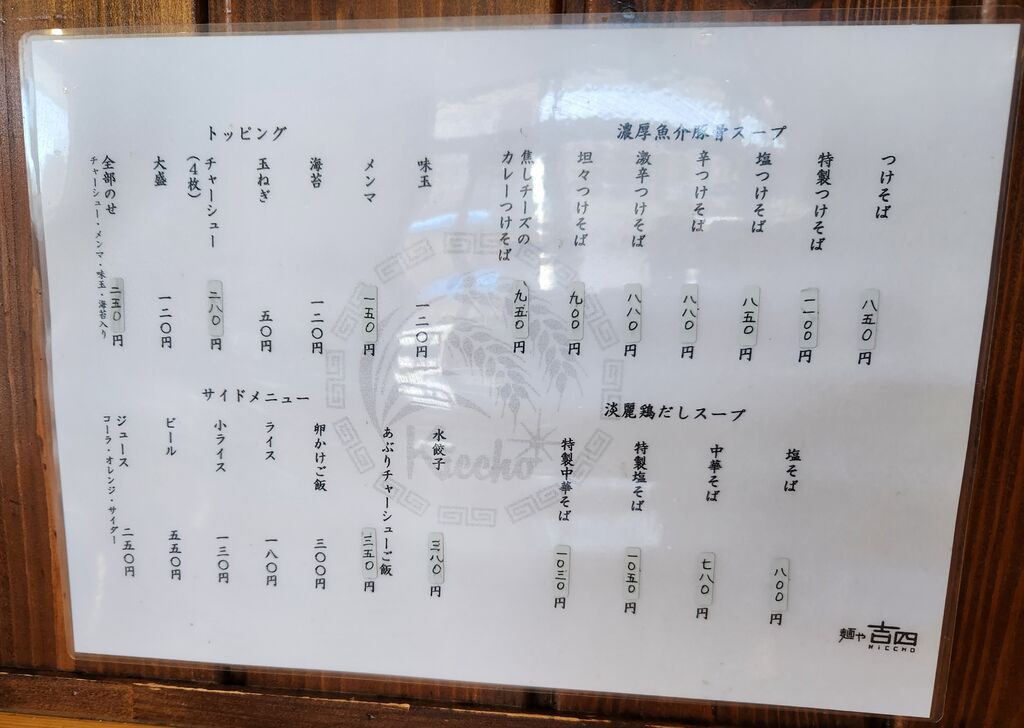 濃厚魚介豚骨スープ
つけそば 八五〇円
特製つけそば 一一〇〇円
塩つけそば 八五〇円
辛つけそば 八八〇円
激辛つけそば 八八〇円
坦々つけそば 九〇〇円
焦しチーズの
カレーつけそば 九五〇円
トッピング
味玉 一二〇円
メンマ 一五〇円
海苔 一二〇円
玉ねぎ 五〇円
チャーシュー
（4枚） 二八〇円
大盛 一二〇円
全部のせ 二五〇円
チャーシュー・メンマ・味玉・海苔入り
淡麗鶏だしスープ
塩そば 八〇〇円
中華そば 七八〇円
特製塩そば 一〇五〇円
特製中華そば 一〇三〇円
サイドメニュー
水餃子 三八〇円
あぶりチャーシューご飯 三五〇円
卵かけご飯 三〇〇円
ライス 一八〇円
小ライス 一三〇円
ビール 五五〇円
ジュース 二五〇円
コーラ・オレンジ・サイダー
Kiccho
麺や 吉四
KICCHO